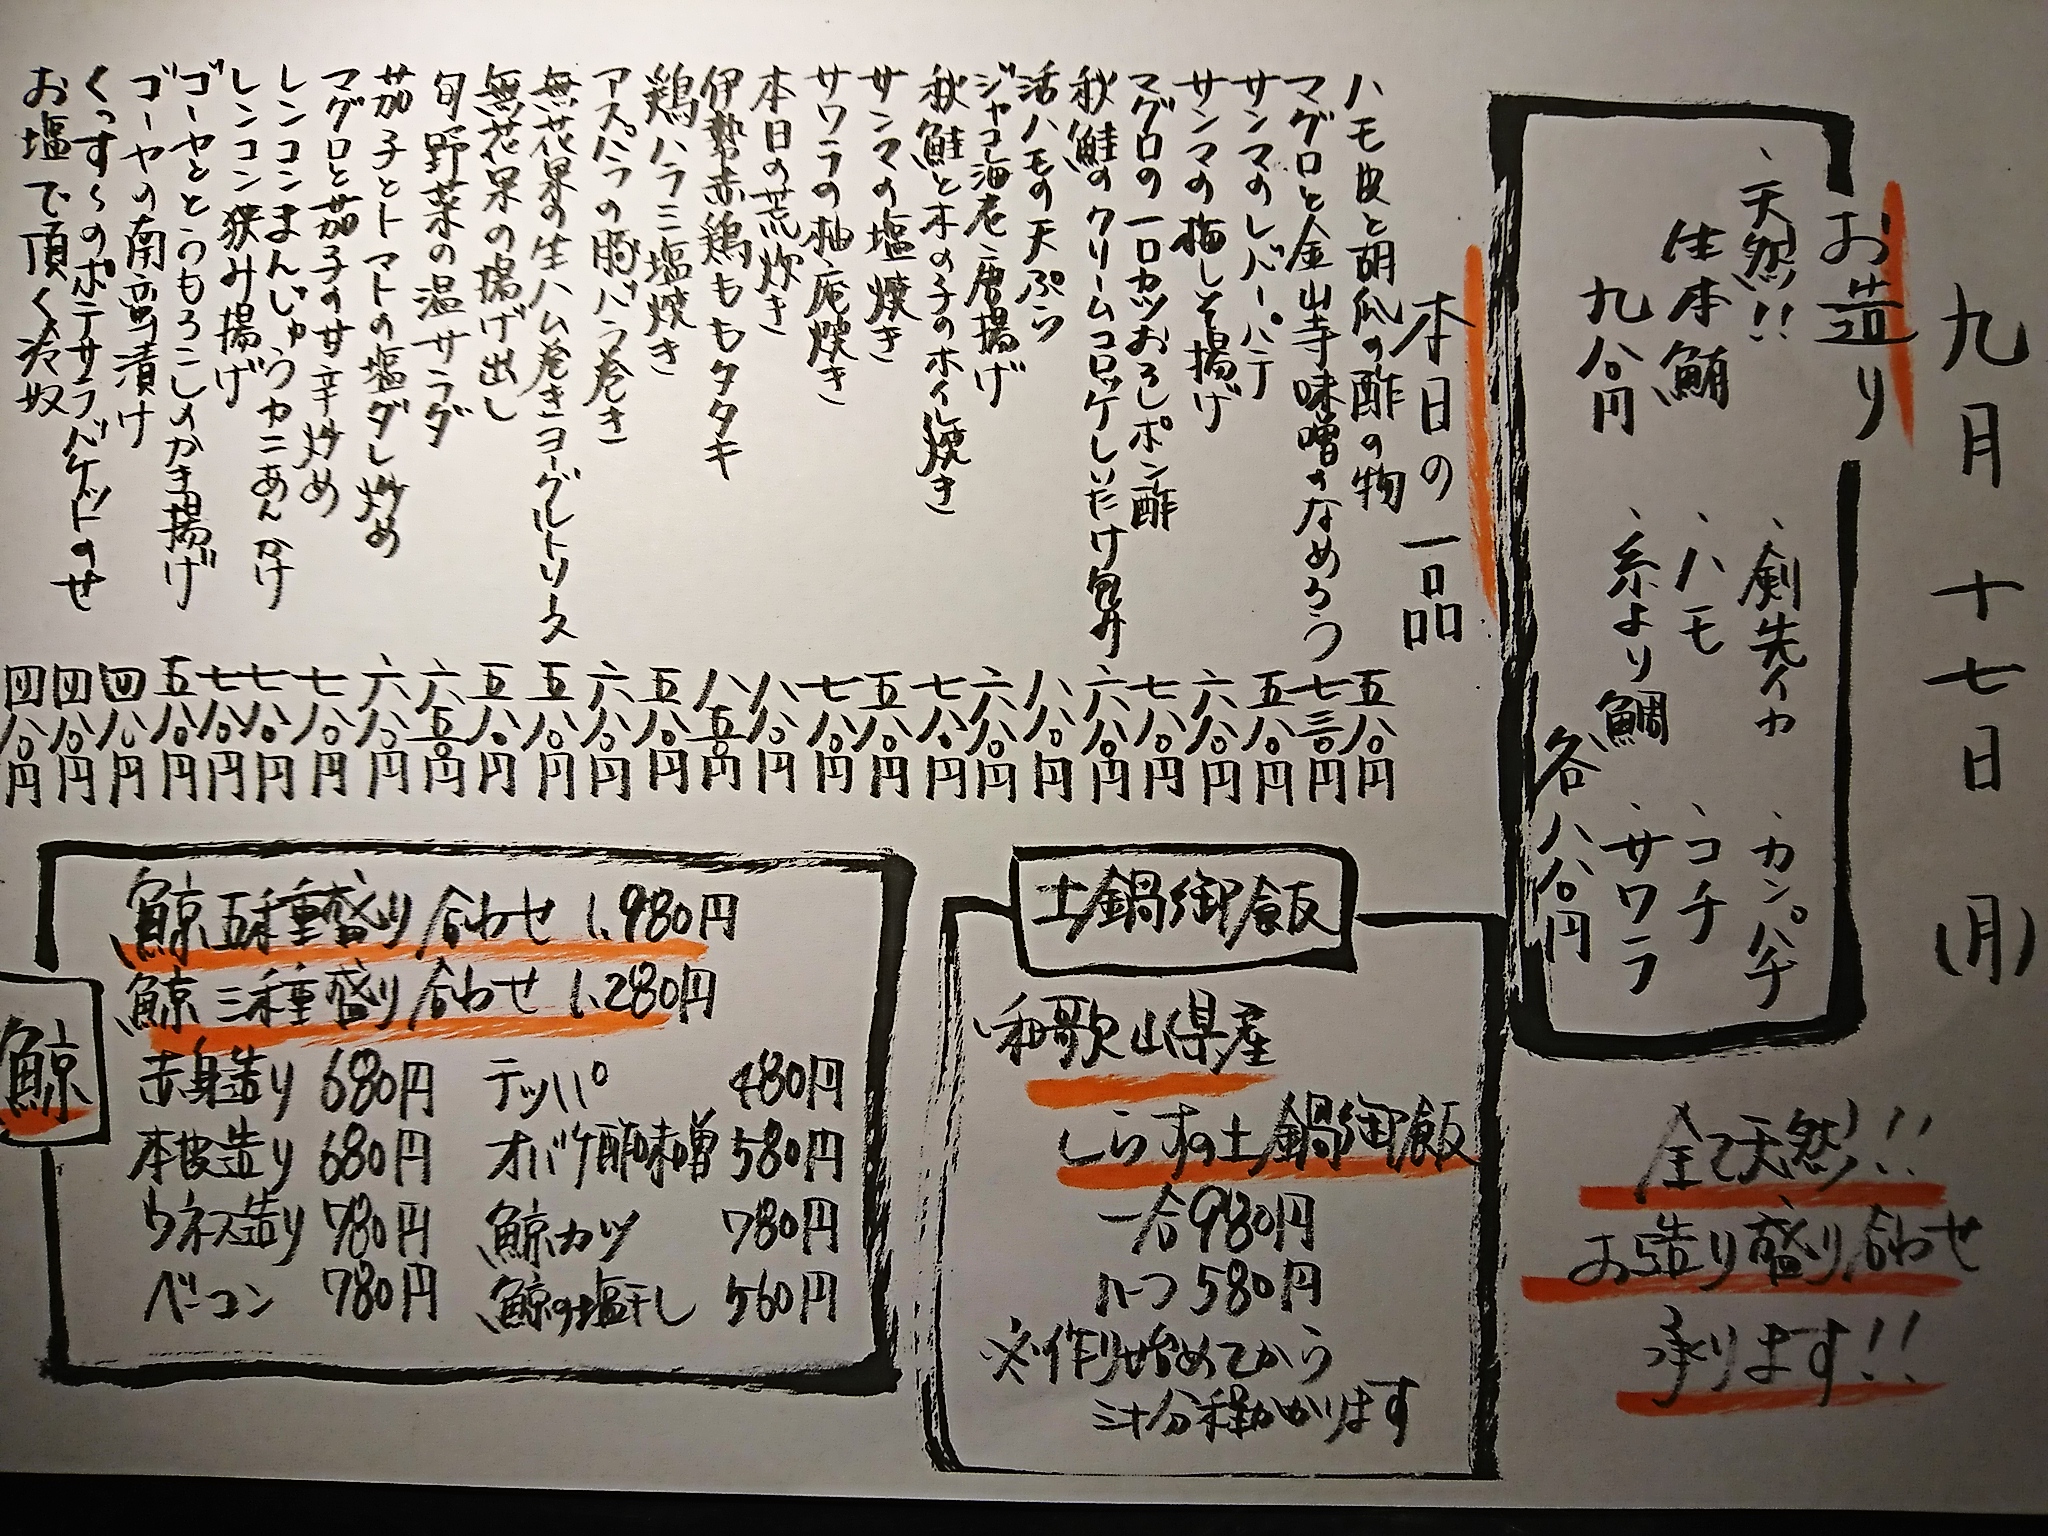 九月十七日(月)
お造り
、天然!!
生本鮪
九八〇円
、剣先イカ
、カンパチ
、ハモ
、コチ
、糸より鯛
、サワラ
各八八〇円
全て天然!!
お造り盛り合わせ
承ります!!
本日の一品
ハモ皮と胡瓜の酢の物 五八〇円
マグロと金山寺味噌のなめろう 七三〇円
サンマのレバーパテ 五八〇円
サンマの梅しそ揚げ 六八〇円
マグロの一口カツおろしポン酢 七八〇円
秋鮭のクリームコロッケしいたけ包み 六八〇円
活ハモの天ぷら 八八〇円
ジャコ海老唐揚げ 六八〇円
秋鮭と木の子のホイル焼き 七八〇円
サンマの塩焼き 五八〇円
サワラの柚庵焼き 七八〇円
本日の荒炊き 八八〇円
伊勢赤鶏ももタタキ 八五〇円
鶏ハラミ塩焼き 五八〇円
アスパラの豚バラ巻き 六八〇円
無花果の生ハム巻きヨーグルトソース 五八〇円
無花果の揚げ出し 五八〇円
旬野菜の温サラダ 六五〇円
茄子とトマトの塩ダレ炒め 六八〇円
マグロと茄子の甘辛炒め 七八〇円
レンコンまんじゅうカニあんかけ 七八〇円
レンコン狭み揚げ 七八〇円
ゴーヤととうもろこしのかき揚げ 五八〇円
ゴーヤの南蛮漬け 四八〇円
くっすくのポテサラバケットのせ 四八〇円
お塩で頂く冷奴 四八〇円
土鍋御飯
和歌山県産
しらすの土鍋御飯
一合980円
ハーフ580円
※作り始めてから
三十分程かかります
鯨
鯨五種盛り合わせ 1,980円
鯨三種盛り合わせ 1,280円
赤身造り 680円 テッパ 480円
本皮造り 680円 オバケ酢味噌 580円
ウネス造り 780円 鯨カツ 780円
ベーコン 780円 鯨の塩干し 560円